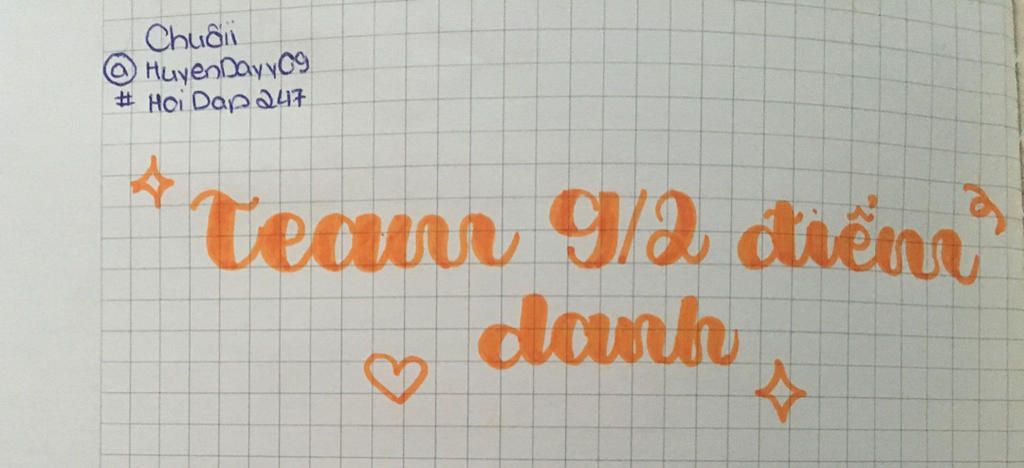 Chuôii
@HuyenDayy09
# HoiDap247
Team 9/2 điểm
danh